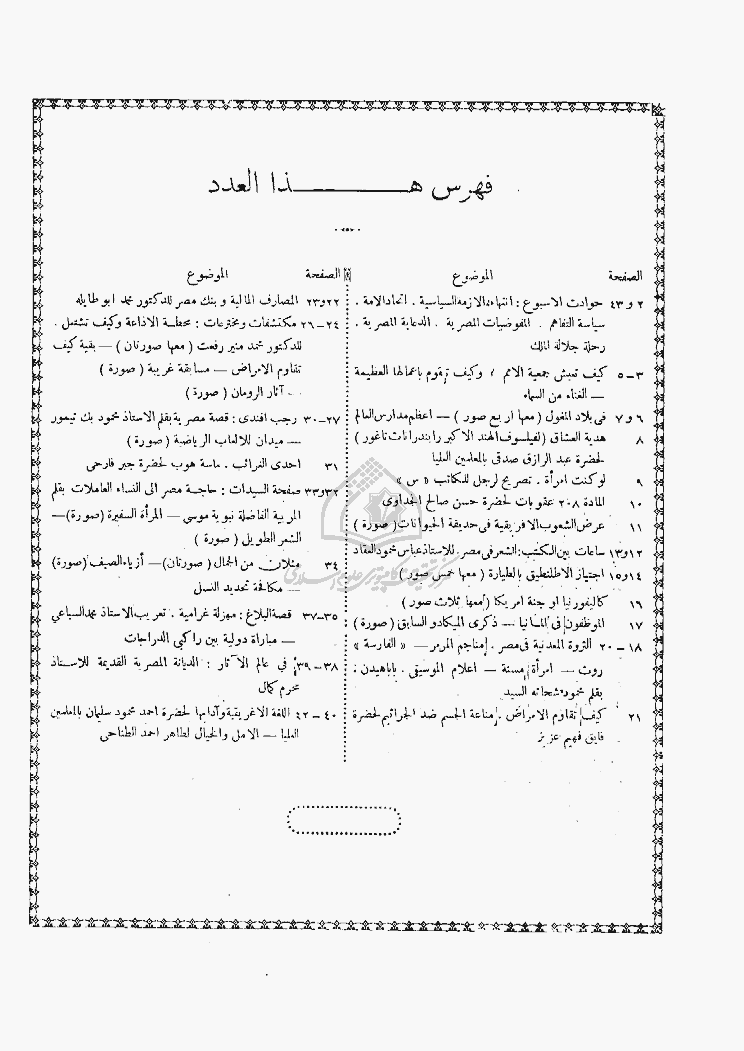 فهرس هــــــــــذا العدد
الصفحة الموضوع
٢ و ٤٣ حوادث الاسبوع : انتهاء الازمة السياسية . اتحاد الامة .
سياسة التفاهم . المفوضيات المصرية . الدعاية المصرية .
رحلة جلالة الملك
٣ — ٥ كيف تعيش جمعية الامم ، وكيف تقوم باعمالها العظيمة
— الغناء من السماء
٦ و ٧ فى بلاد المغول ( معها اربع صور ) — اعظم مدارس العالم
٨ هدية العشاق ( لفيلسوف الهند الاكبر رابندرانات تاغور )
لحضرة عبد الرازق صدقى بالمعلمين العليا
٩ لو كنت امرأة . تصريح لرجل للكاتب « س »
١٠ المادة ٢٠٨ عقوبات لحضرة حسن صالح الجداوى
١١ عرض الشعوب الافريقية فى حديقة الحيوانات ( صورة )
١٢ و ١٣ ساعات بين الكتب : الشعر فى مصر . للاستاذ عباس محمود العقاد
١٤ و ١٥ اجتياز الاطلنطيق بالطيارة ( معها خمس صور )
١٦ كاليفورنيا او جنة امريكا ( معها ثلاث صور )
١٧ الموظفون فى المانيا — ذكرى الميكادو السابق ( صورة )
١٨ — ٢٠ الثروة المعدنية فى مصر . مناجم المرمر — « الفارسة »
روث — امرأة مسنة — اعلام الموسيقى . باباهيدن :
بقلم محمود شحاته السيد
٢١ كيف تقاوم الامراض . مناعة الجسم ضد الجراثيم لحضرة
فايق فهيم عزيز
الصفحة الموضوع
٢٢ و ٢٣ المصارف المالية و بنك مصر للدكتور محمد ابو طايله
٢٤ — ٢٦ مكتشفات ومخترعات : محطة الاذاعة وكيف تشتغل .
للدكتور محمد منير رفعت ( معها صورتان ) — بقية كيف
تقاوم الامراض — مسابقة غريبة ( صورة )
. آثار الرومان ( صورة )
٢٧ — ٣٠ رجب افندى : قصة مصرية بقلم الاستاذ محمود بك تيمور
— ميدان للالعاب الرياضية ( صورة )
٣١ احدى الغرائب . ماسة هوب لحضرة جبر فارحى
٣٢ و ٣٣ صفحة السيدات : حاجة مصر الى النساء العاملات بقلم
المربية الفاضلة نبوية موسى — المرأة السفيرة ( صورة ) —
الشعر الطويل ( صورة )
٣٤ مثلان من الجمال ( صورتان ) — أزياء الصيف ( صورة )
— مكافحة تحديد النسل
٣٥ — ٣٧ قصة البلاغ : مهزلة غرامية . تعريب الاستاذ محمد السباعي
— مباراة دولية بين راكبي الدراجات
٣٨ — ٣٩ في عالم الآثار : الديانة المصرية القديمة للاستاذ
محرم كمال
٤٠ — ٤٢ اللغة الاغريقية وآدابها لحضرة احمد محمود سلمان بالمعلمين
العليا — الامل والخيال لطاهر احمد الطناحى